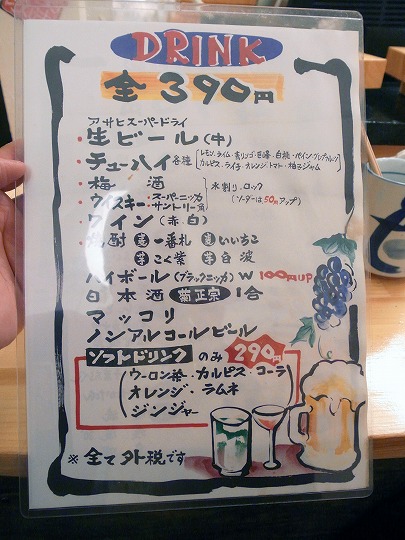 DRINK
全390円
アサヒスーパードライ
・生ビール(中)
・チューハイ 各種 (レモン・ライム・青リンゴ・巨峰・白桃・パイン・グレープフルーツ
カルピス・ライチ・オレンジ・トマト・柚子ジャム)
・梅酒
・ウイスキー・スーパーニッカ
サントリー角
水割り・ロック
(ソーダーは50円アップ)
ワイン(赤・白)
・焼酎 麦 一番札 麦 いいちこ
芋 こく紫 芋 白波
ハイボール(ブラックニッカ) W 100円UP
日本酒 菊正宗 1合
マッコリ
ノンアルコールビール
ソフトドリンク のみ 290円
(ウーロン茶・カルピス・コーラ
オレンジ・ラムネ
ジンジャー
※全て外税です